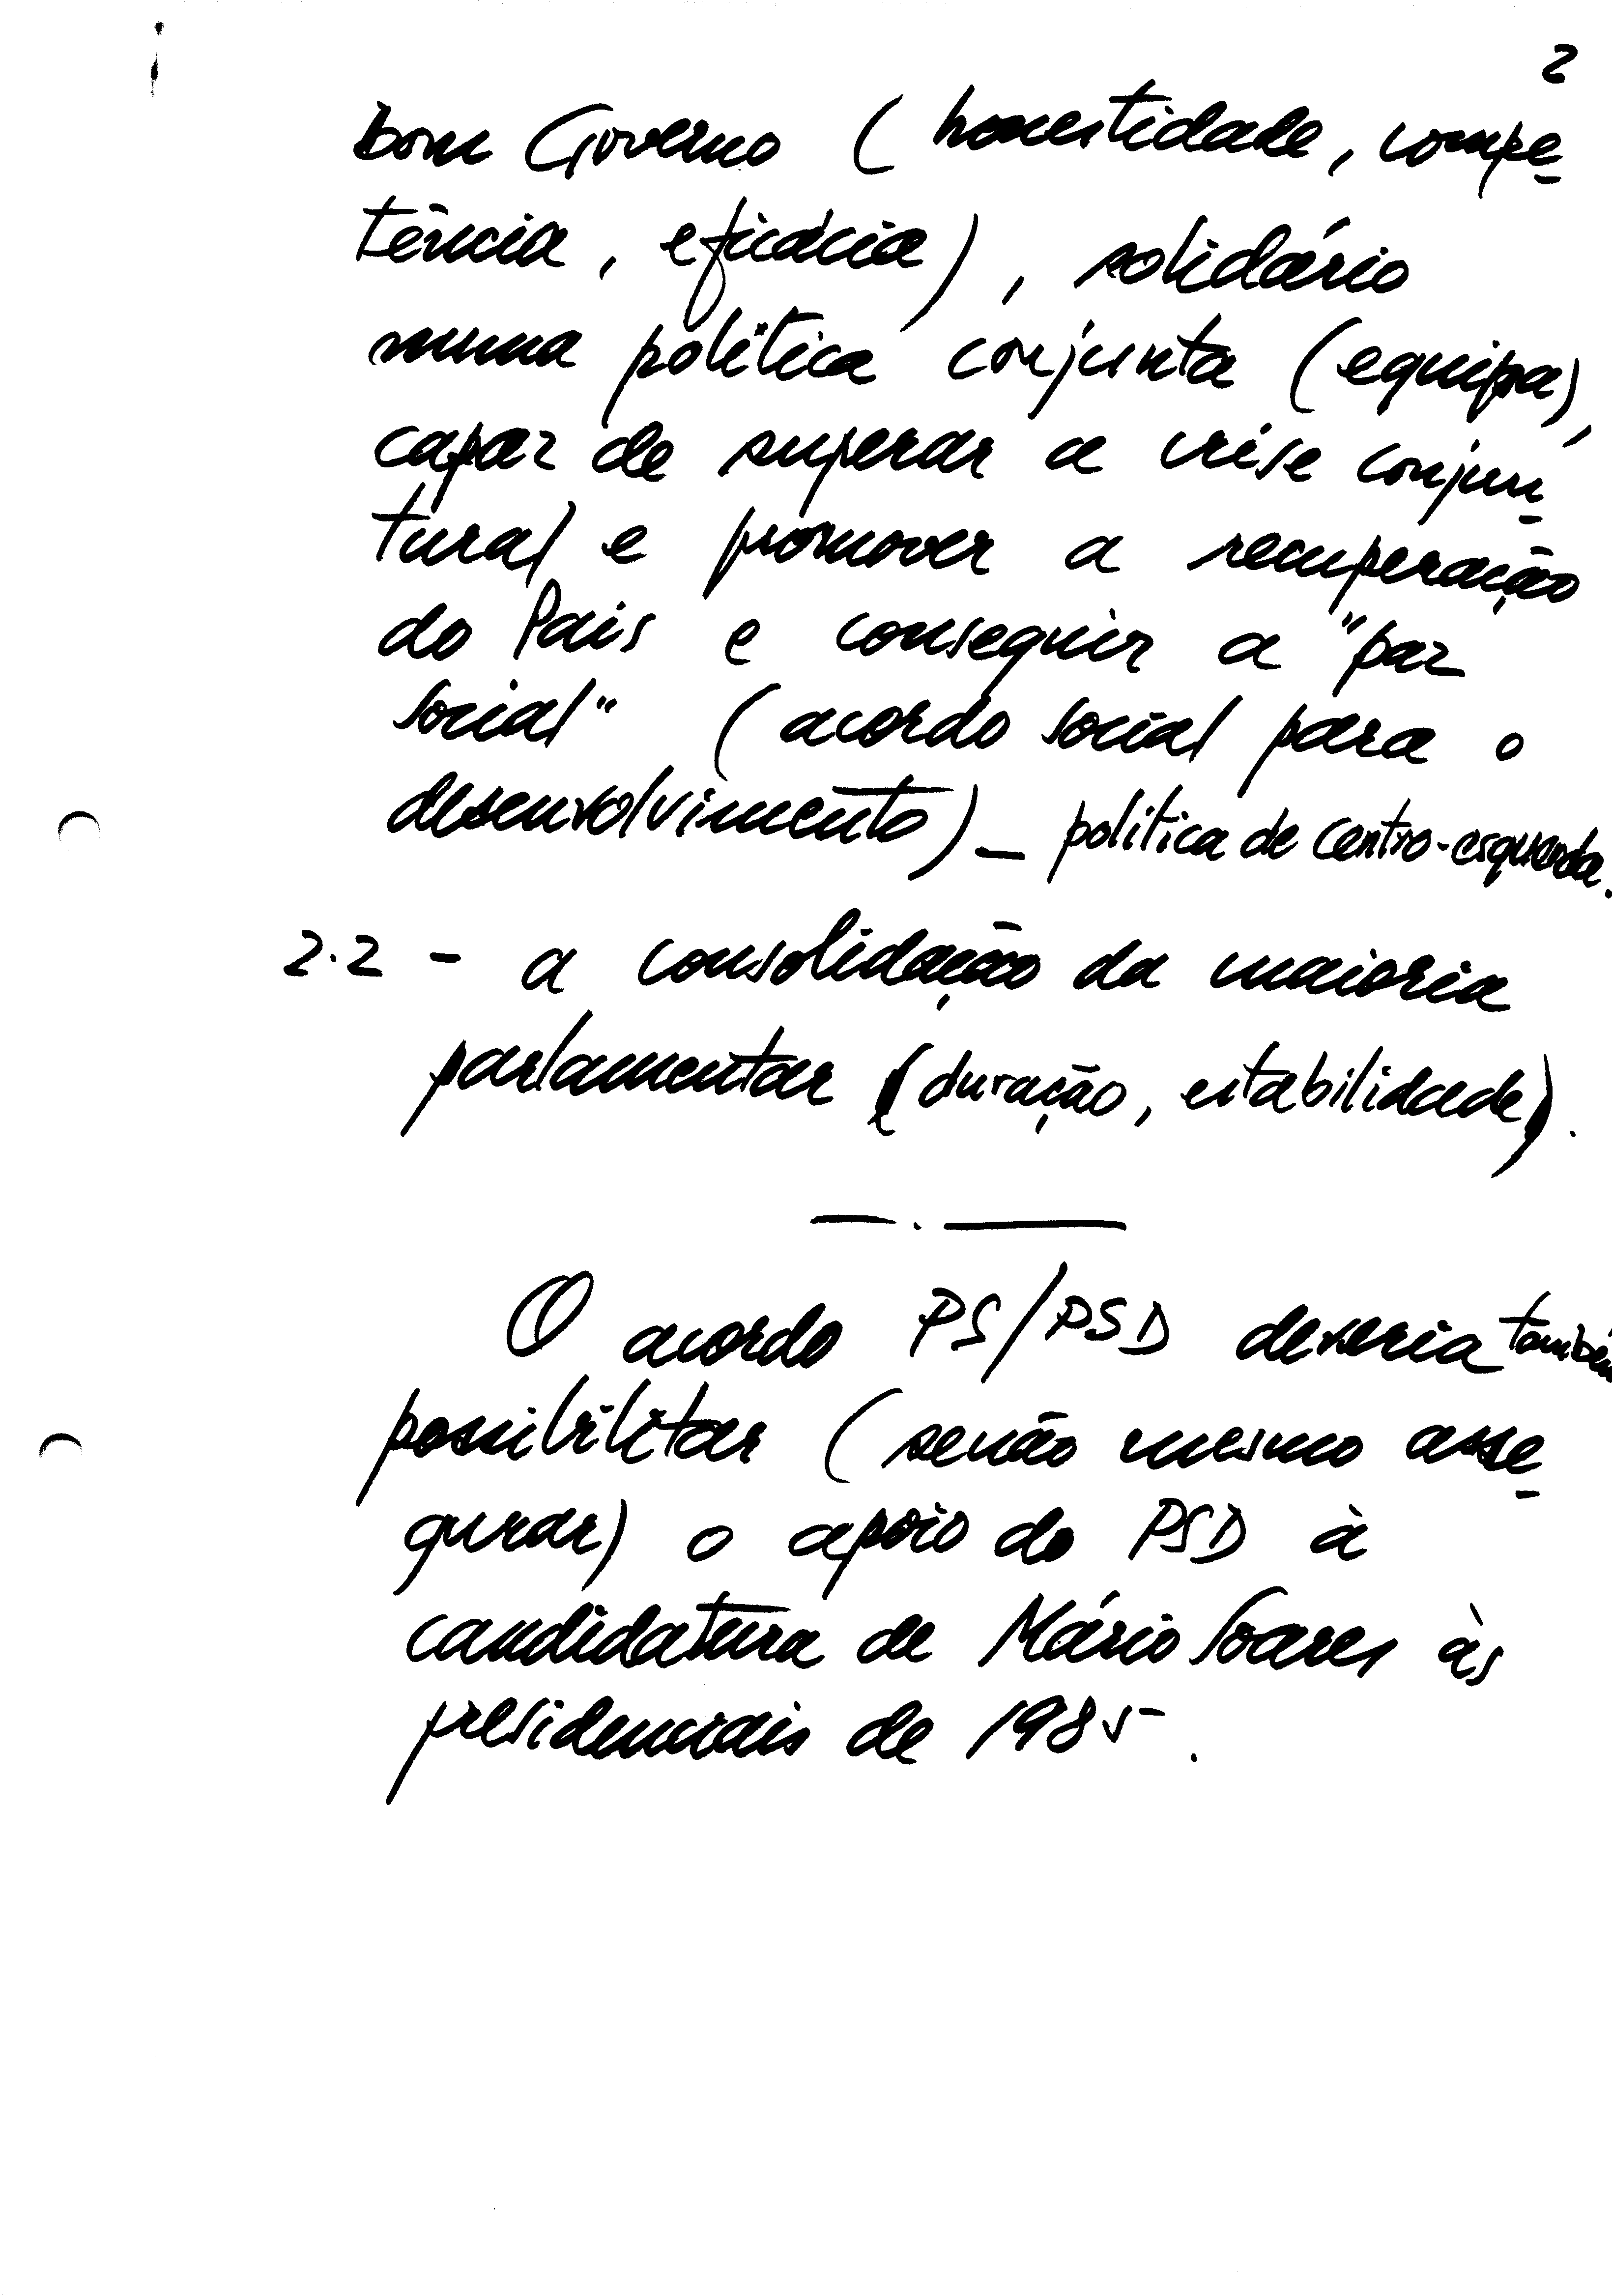 2
bom Governo (honestidade, compe-
tência, eficácia), solidário
numa política conjunta (equipa),
capaz de superar a crise conjun-
tural e promover a recuperação
do País e conseguir a "paz
social" (acordo social para o
desenvolvimento) - política de centro-esquerda.
2.2 - a consolidação da maioria
parlamentar (duração, estabilidade).
O acordo PS/PSD deveria também
possibilitar (senão mesmo asse-
gurar) o apoio do PSD à
candidatura de Mário Soares às
presidenciais de 1985.